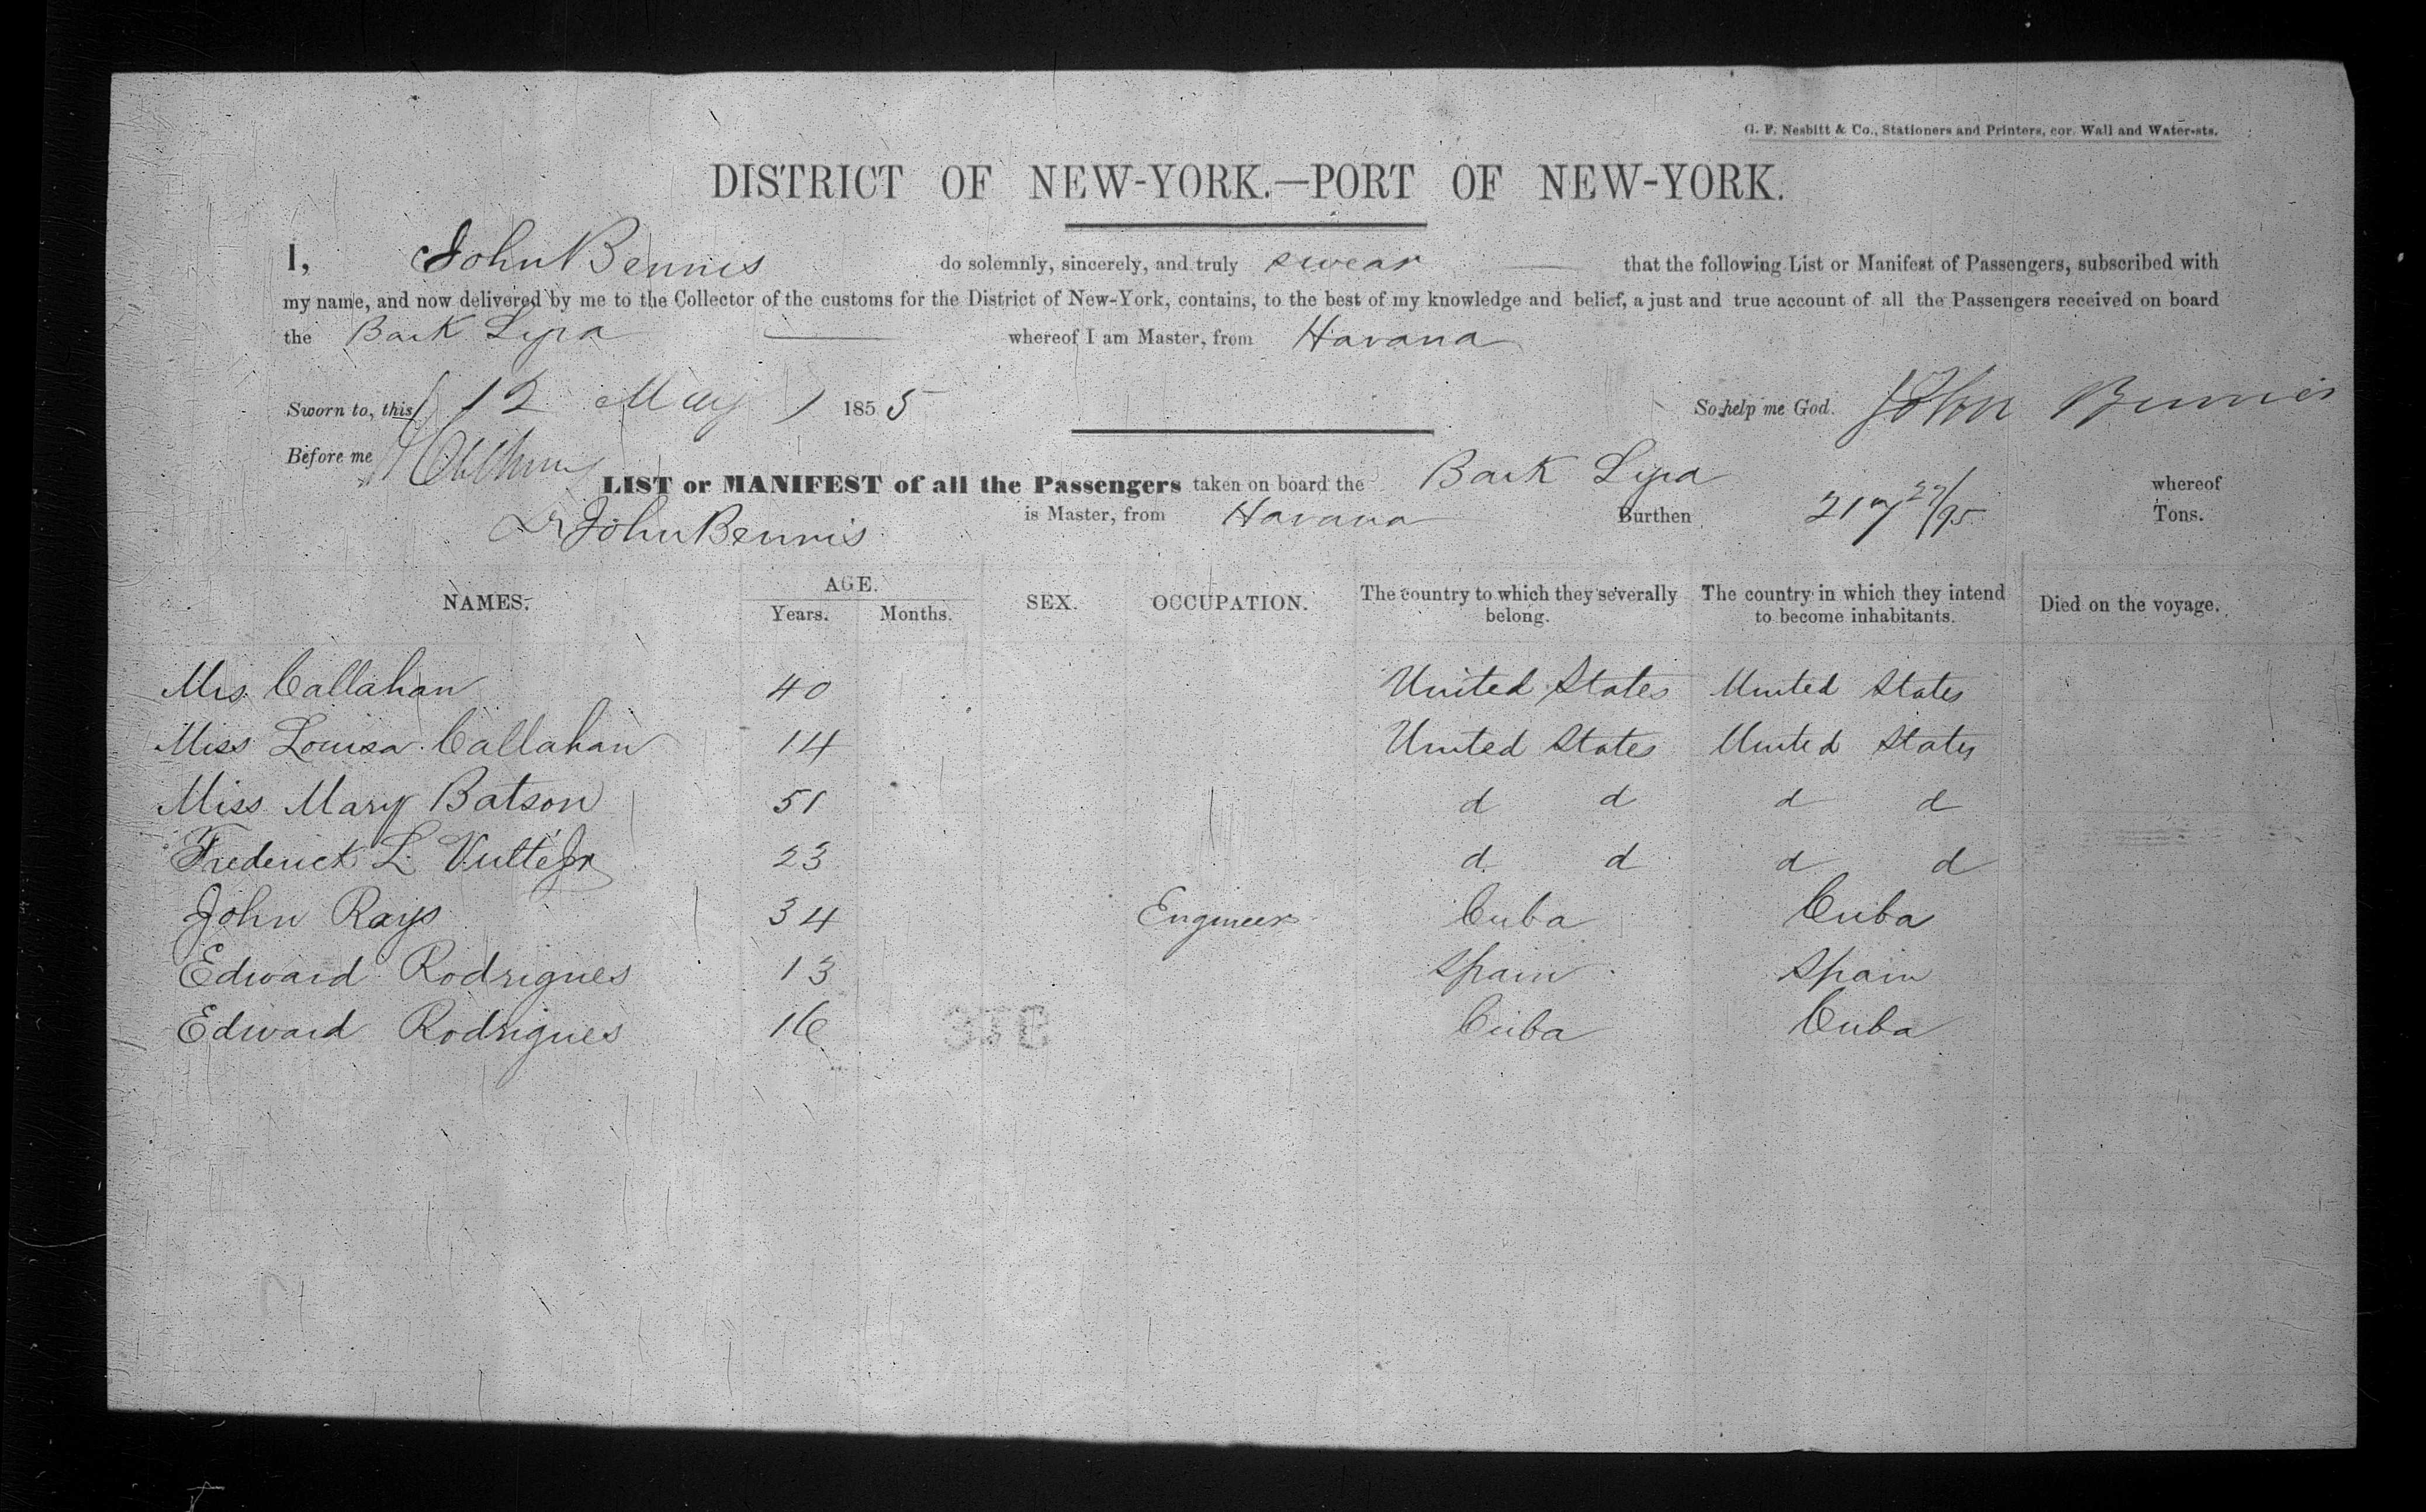 G. F. Nesbitt & Co., Stationers and Printers, cor. Wall and Water-sts.
DISTRICT OF NEW-YORK.—PORT OF NEW-YORK.
I, John Bennis do solemnly, sincerely, and truly swear that the following List or Manifest of Passengers, subscribed with
my name, and now delivered by me to the Collector of the customs for the District of New-York, contains, to the best of my knowledge and belief, a just and true account of all the Passengers received on board
the Bark Lyra whereof I am Master, from Havana
Sworn to, this 12 May 1855 So help me God. John Bennis
Before me
LIST or MANIFEST of all the Passengers taken on board the Bark Lyra whereof
John Bennis is Master, from Havana Burthen 217 27/95 Tons.
NAMES. AGE. Years. Months. SEX. OCCUPATION. The country to which they severally belong. The country in which they intend to become inhabitants. Died on the voyage.
Mrs. Callahan 40 United States United States
Miss Louisa Callahan 14 United States United States
Miss Mary Batson 51 d d d d
Frederick L. Vulté Jr 23 d d d d
John Rays 34 Engineer Cuba Cuba
Edward Rodrigues 13 Spain Spain
Edward Rodrigues 16 Cuba Cuba